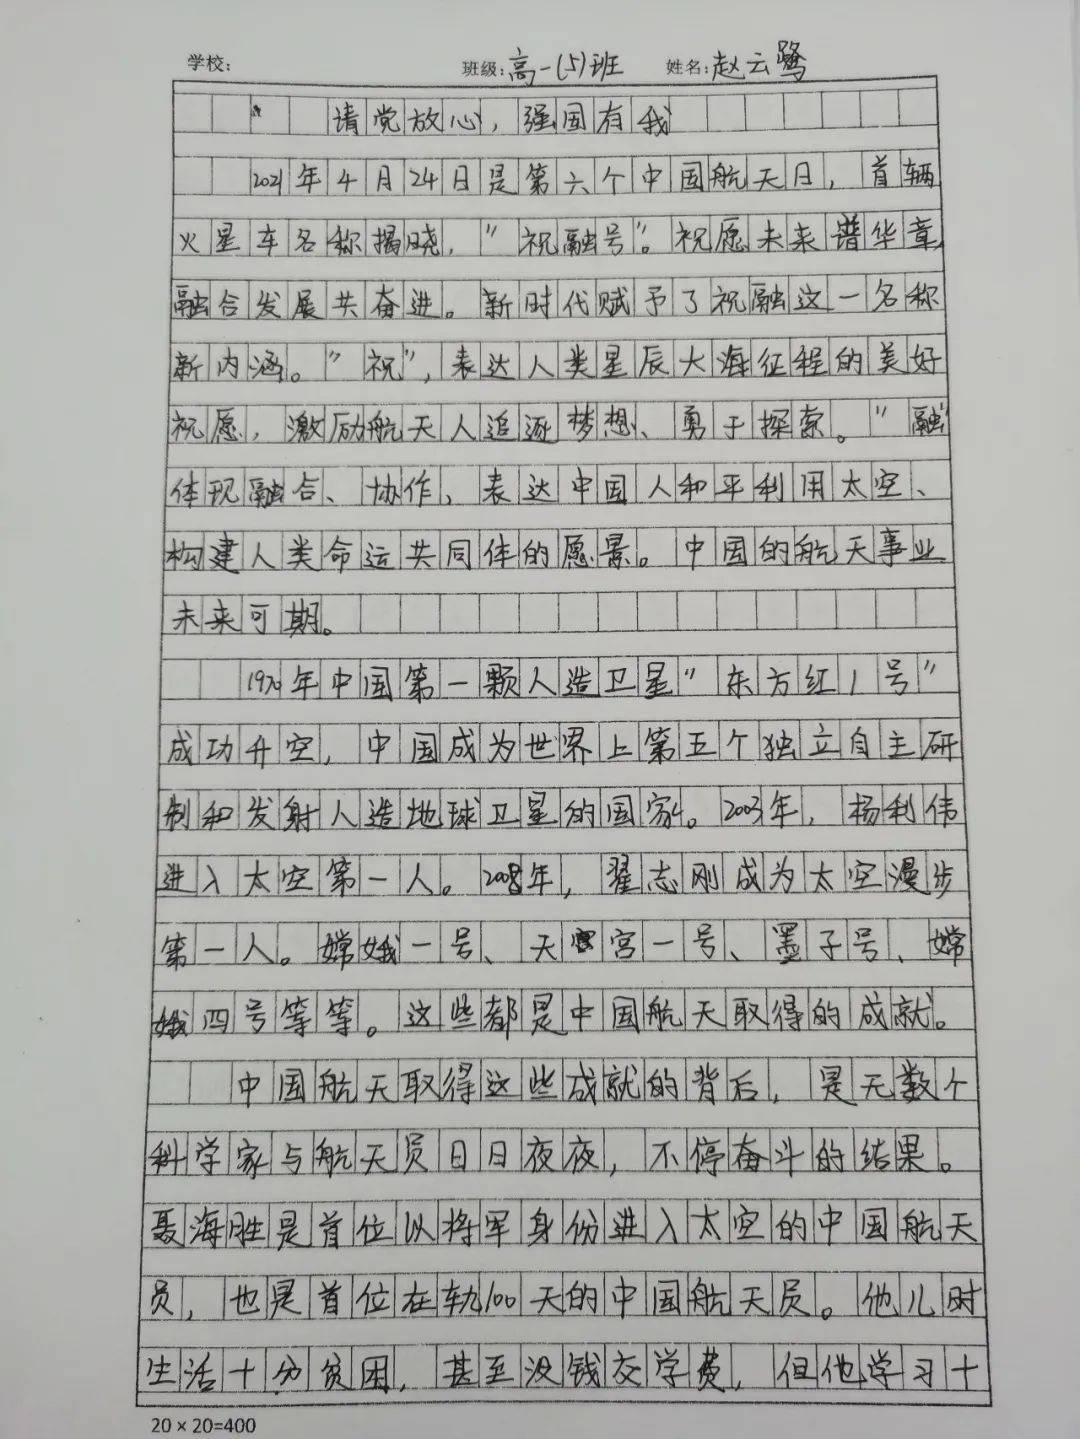 学校: 班级:高一(5)班 姓名:赵云鹭
请党放心，强国有我
2021年4月24日是第六个中国航天日，首辆
火星车名称揭晓，"祝融号"。祝愿未来谱华章，
融合发展共奋进。新时代赋予了祝融这一名称
新内涵。"祝"，表达人类星辰大海征程的美好
祝愿，激励航天人追逐梦想、勇于探索。"融"
体现融合、协作，表达中国人和平利用太空、
构建人类命运共同体的愿景。中国的航天事业
未来可期。
1970年中国第一颗人造卫星"东方红1号"
成功升空，中国成为世界上第五个独立自主研
制和发射人造地球卫星的国家。2003年，杨利伟
进入太空第一人。2008年，翟志刚成为太空漫步
第一人。嫦娥一号、天宫一号、墨子号、嫦
娥四号等等。这些都是中国航天取得的成就。
中国航天取得这些成就的背后，是无数个
科学家与航天员日日夜夜，不停奋斗的结果。
聂海胜是首位以将军身份进入太空的中国航天
员，也是首位在轨100天的中国航天员。他儿时
生活十分贫困，甚至没钱交学费，但他学习十
20×20=400